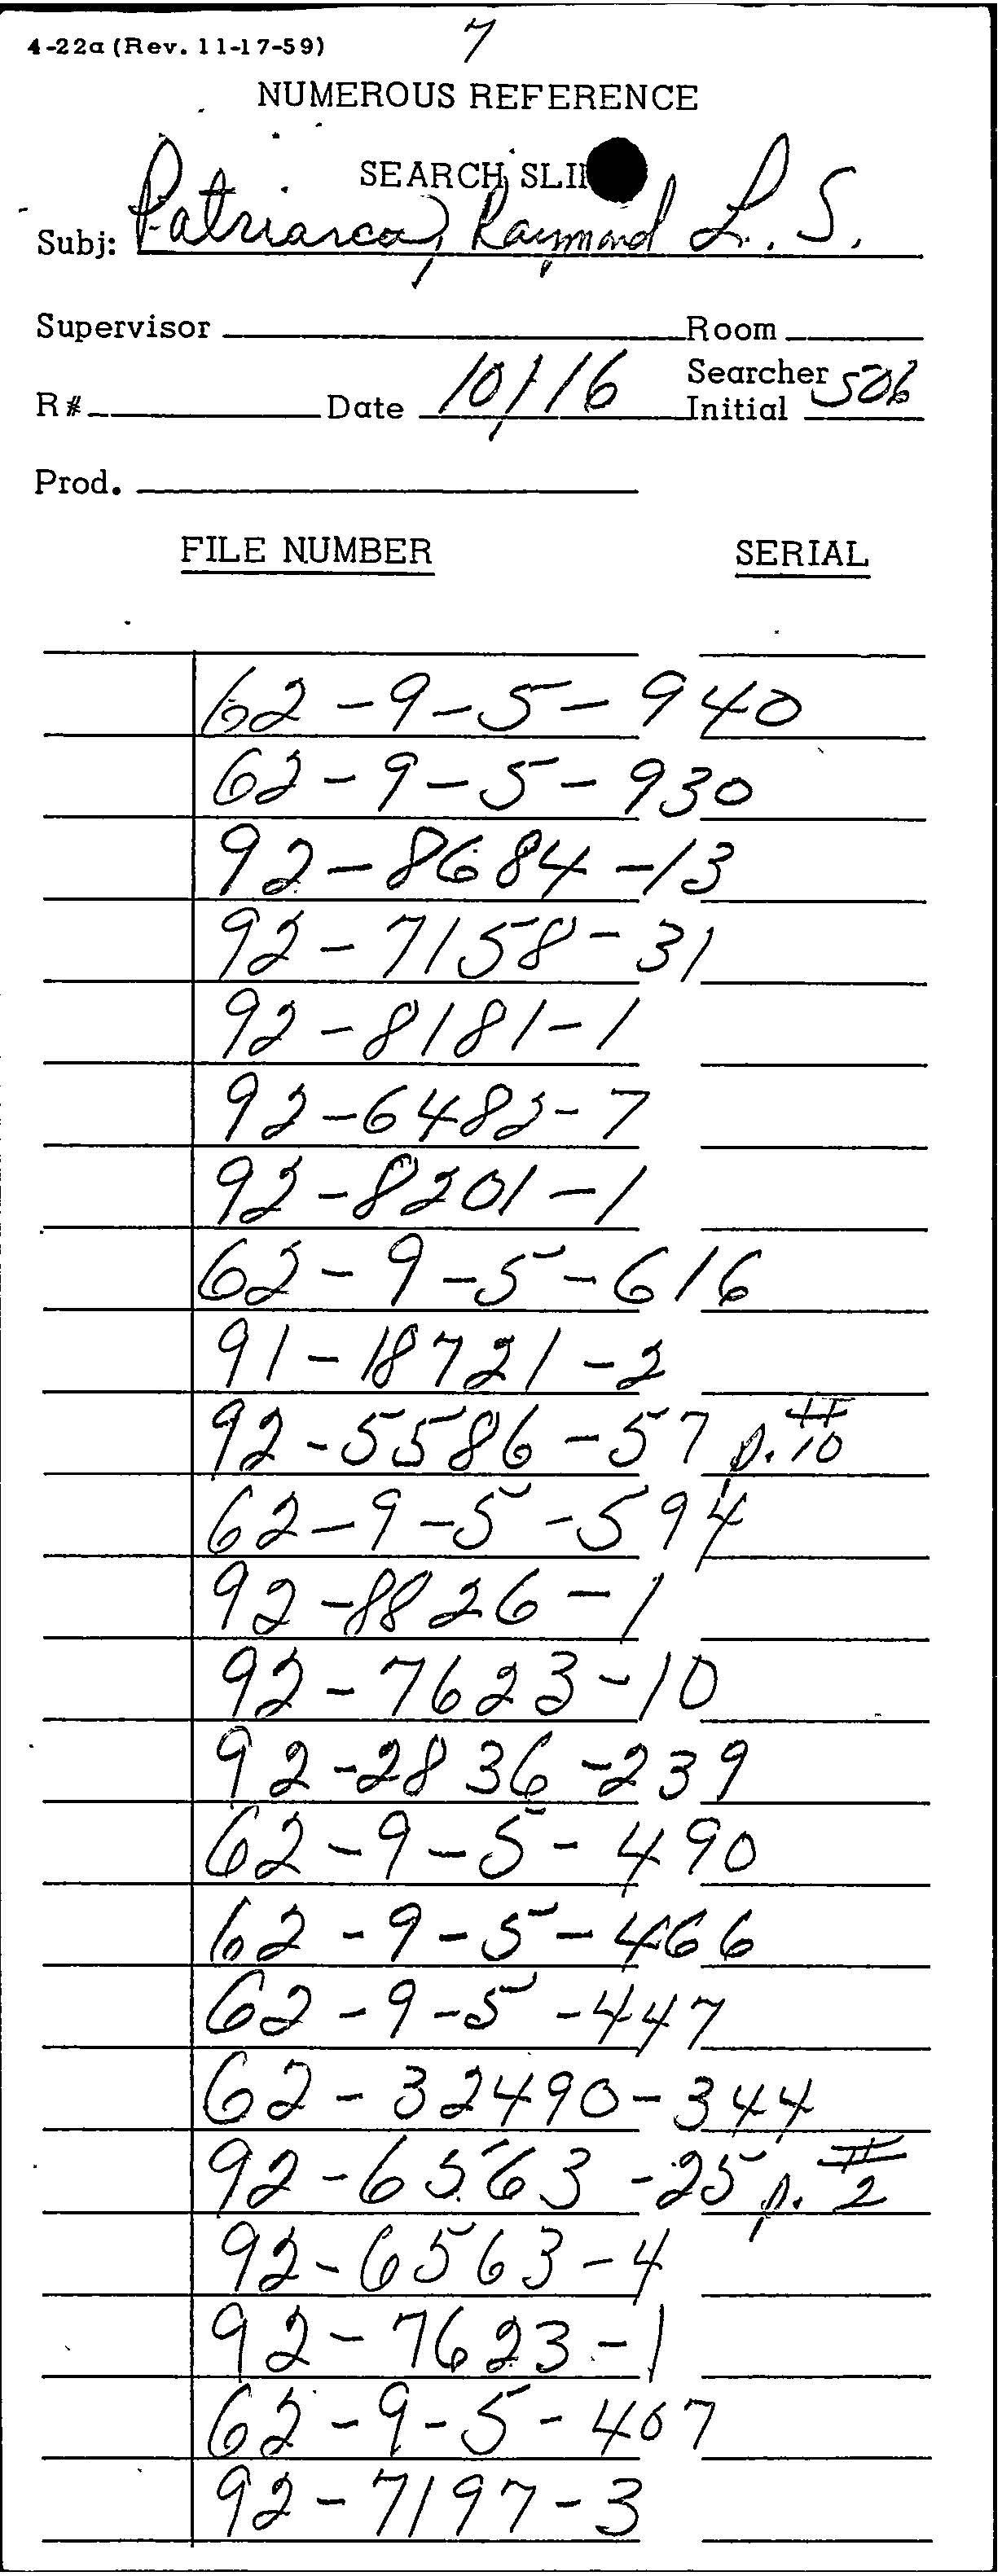 4-22a (Rev. 11-17-59) 7
NUMEROUS REFERENCE
SEARCH SLIP
Subj: Patriarca, Raymond L. S.
Supervisor Room
R# Date 10/16 Searcher Initial 506
Prod.
FILE NUMBER SERIAL
62-9-5-940
62-9-5-930
92-8684-13
92-7158-31
92-8181-1
92-6482-7
92-8201-1
62-9-5-616
91-18721-2
92-5586-57 p. II 10
62-9-5-594
92-8826-1
92-7623-10
92-2836-239
62-9-5-490
62-9-5-466
62-9-5-447
62-32490-344
92-6563-25 p. II 2
92-6563-4
92-7623-1
62-9-5-407
92-7197-3